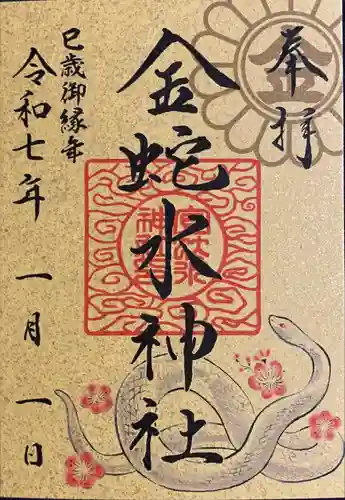 奉拝
金蛇水神社
巳歳御縁年
令和七年 一月 一日